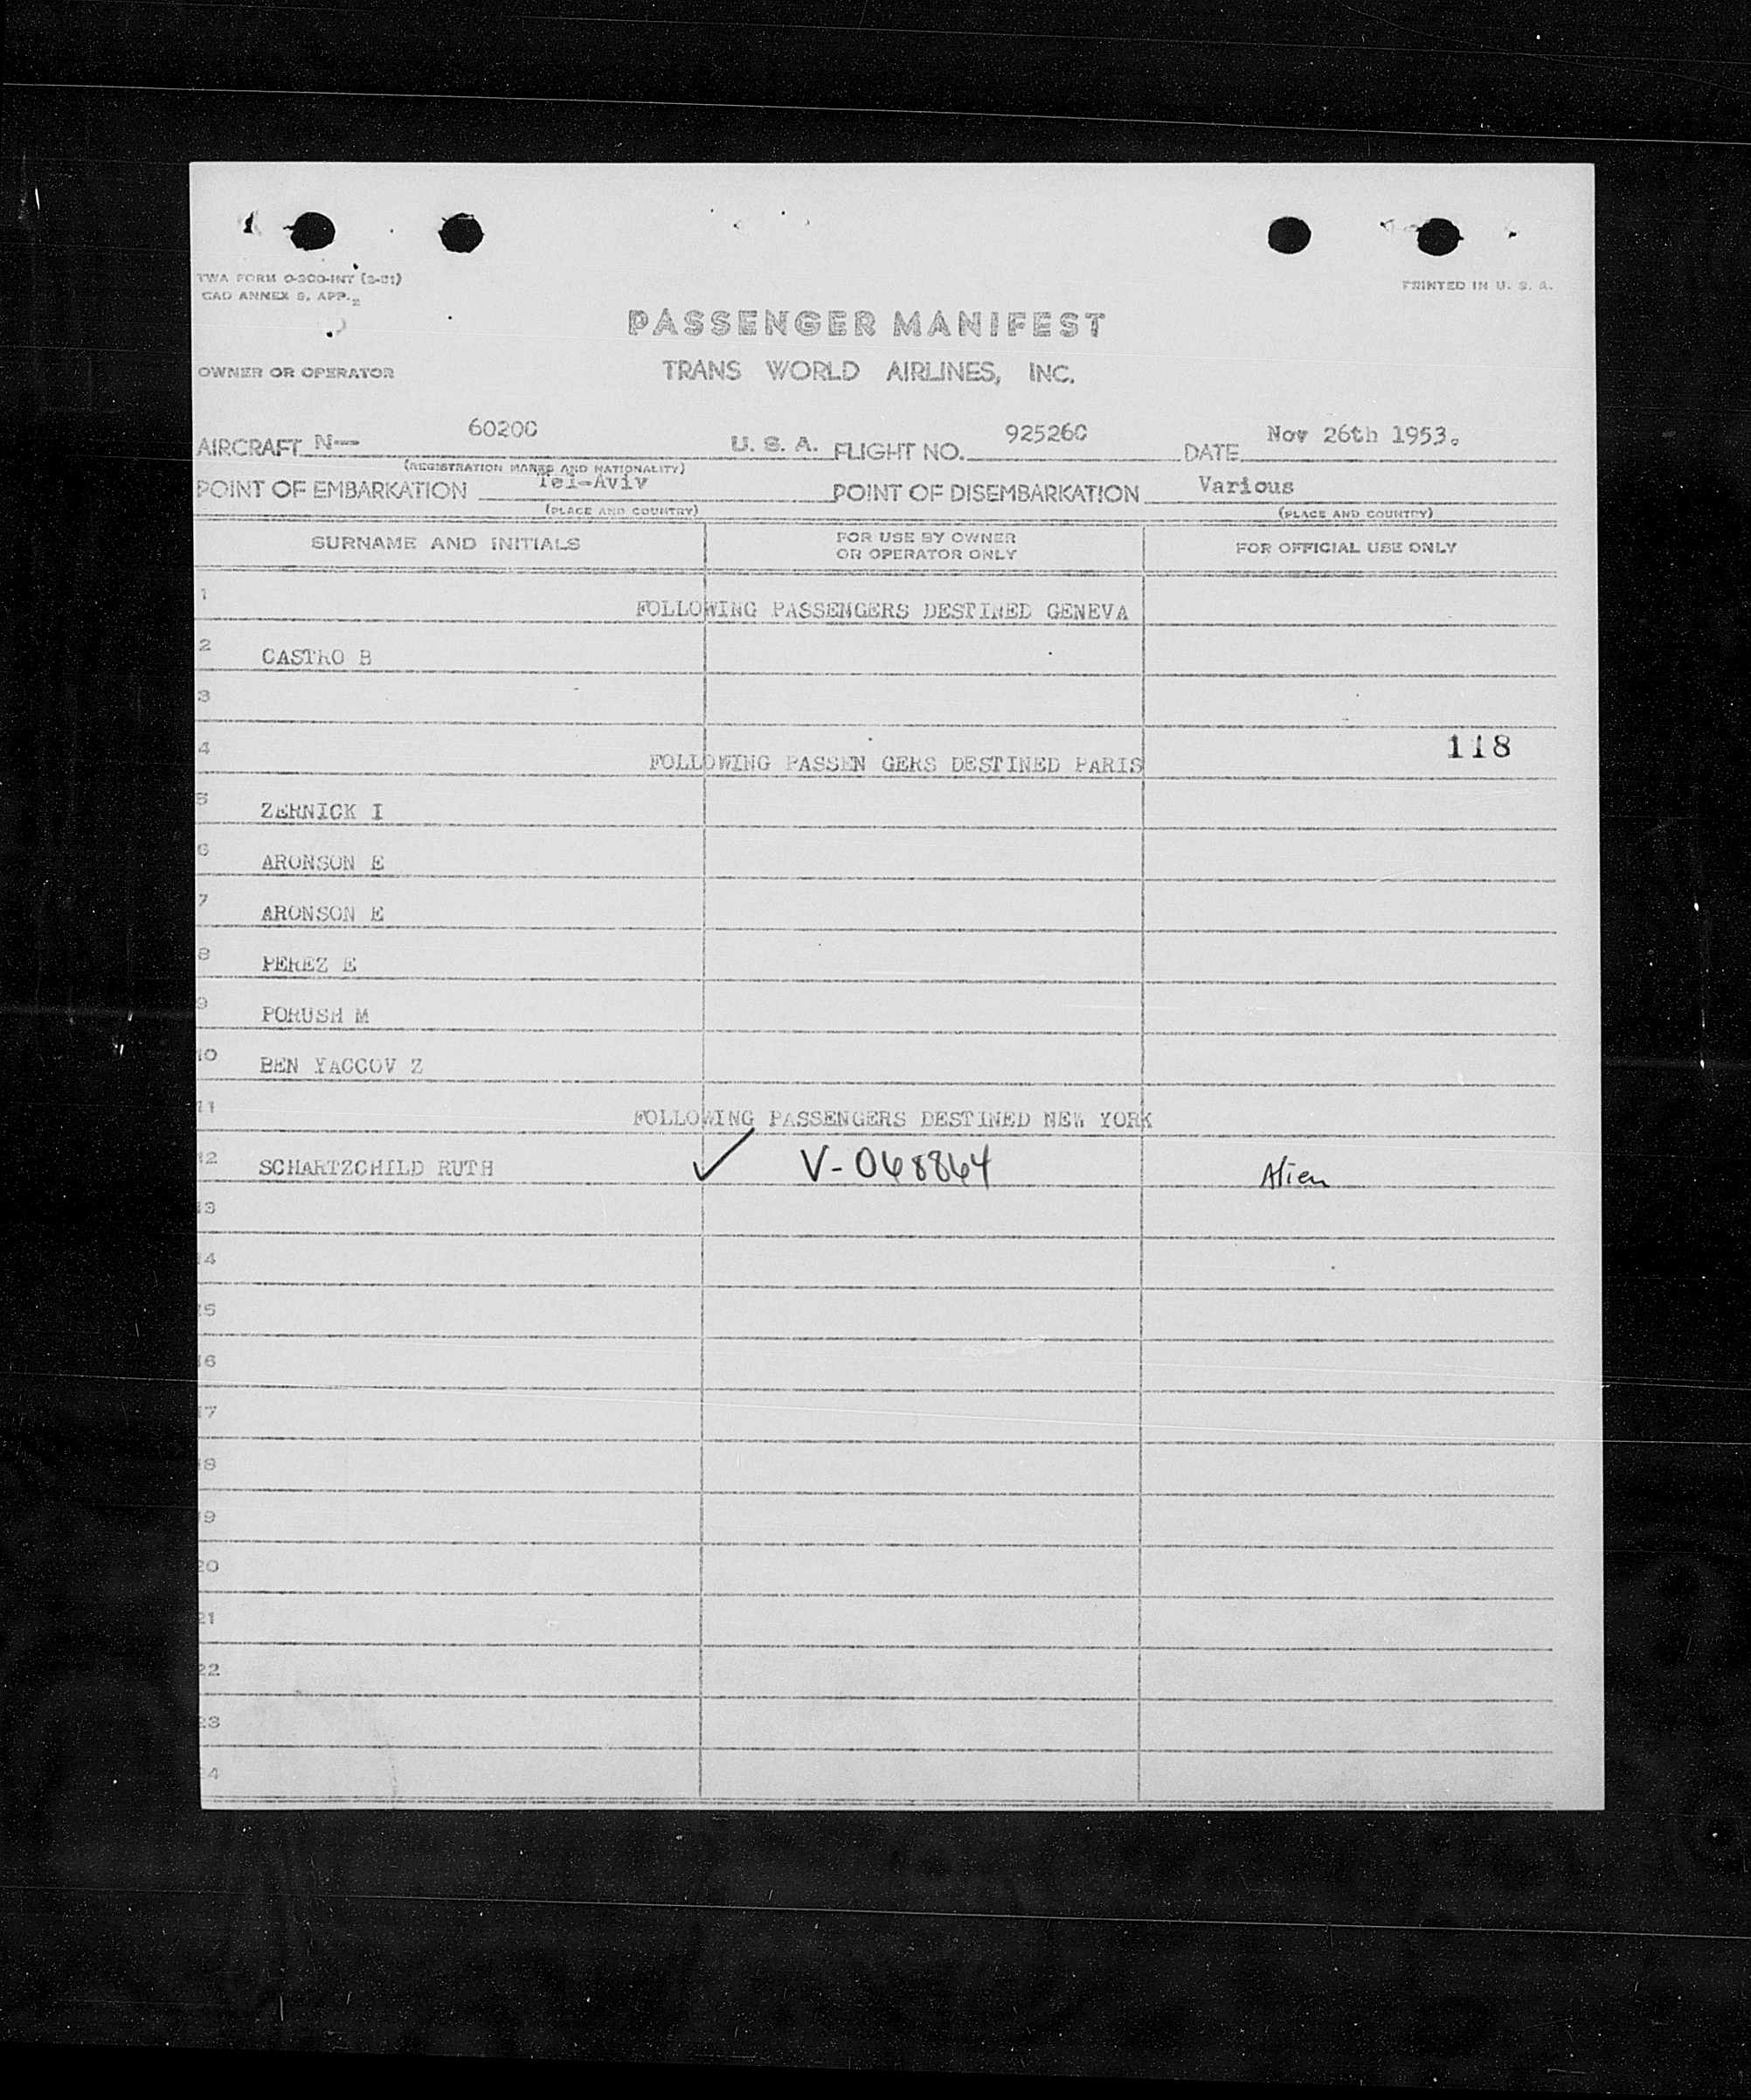 TWA FORM O-300-INT (2-51)
CAO ANNEX 9, APP. 2
PRINTED IN U. S. A.
PASSENGER MANIFEST
OWNER OR OPERATOR
TRANS WORLD AIRLINES, INC.
AIRCRAFT N— 6020C U. S. A. FLIGHT NO. 92526C DATE Nov 26th 1953.
(REGISTRATION MARKS AND NATIONALITY)
POINT OF EMBARKATION Tel-Aviv POINT OF DISEMBARKATION Various
(PLACE AND COUNTRY) (PLACE AND COUNTRY)
SURNAME AND INITIALS FOR USE BY OWNER OR OPERATOR ONLY FOR OFFICIAL USE ONLY
1 FOLLOWING PASSENGERS DESTINED GENEVA
2 CASTRO B
3
4 FOLLOWING PASSEN GERS DESTINED PARIS 118
5 ZERNICK I
6 ARONSON E
7 ARONSON E
8 PEREZ E
9 PORUSH M
10 BEN YACCOV Z
11 FOLLOWING PASSENGERS DESTINED NEW YORK
12 SCHARTZCHILD RUTH ✓ V-068864 Alien
13
14
15
16
17
18
19
20
21
22
23
24